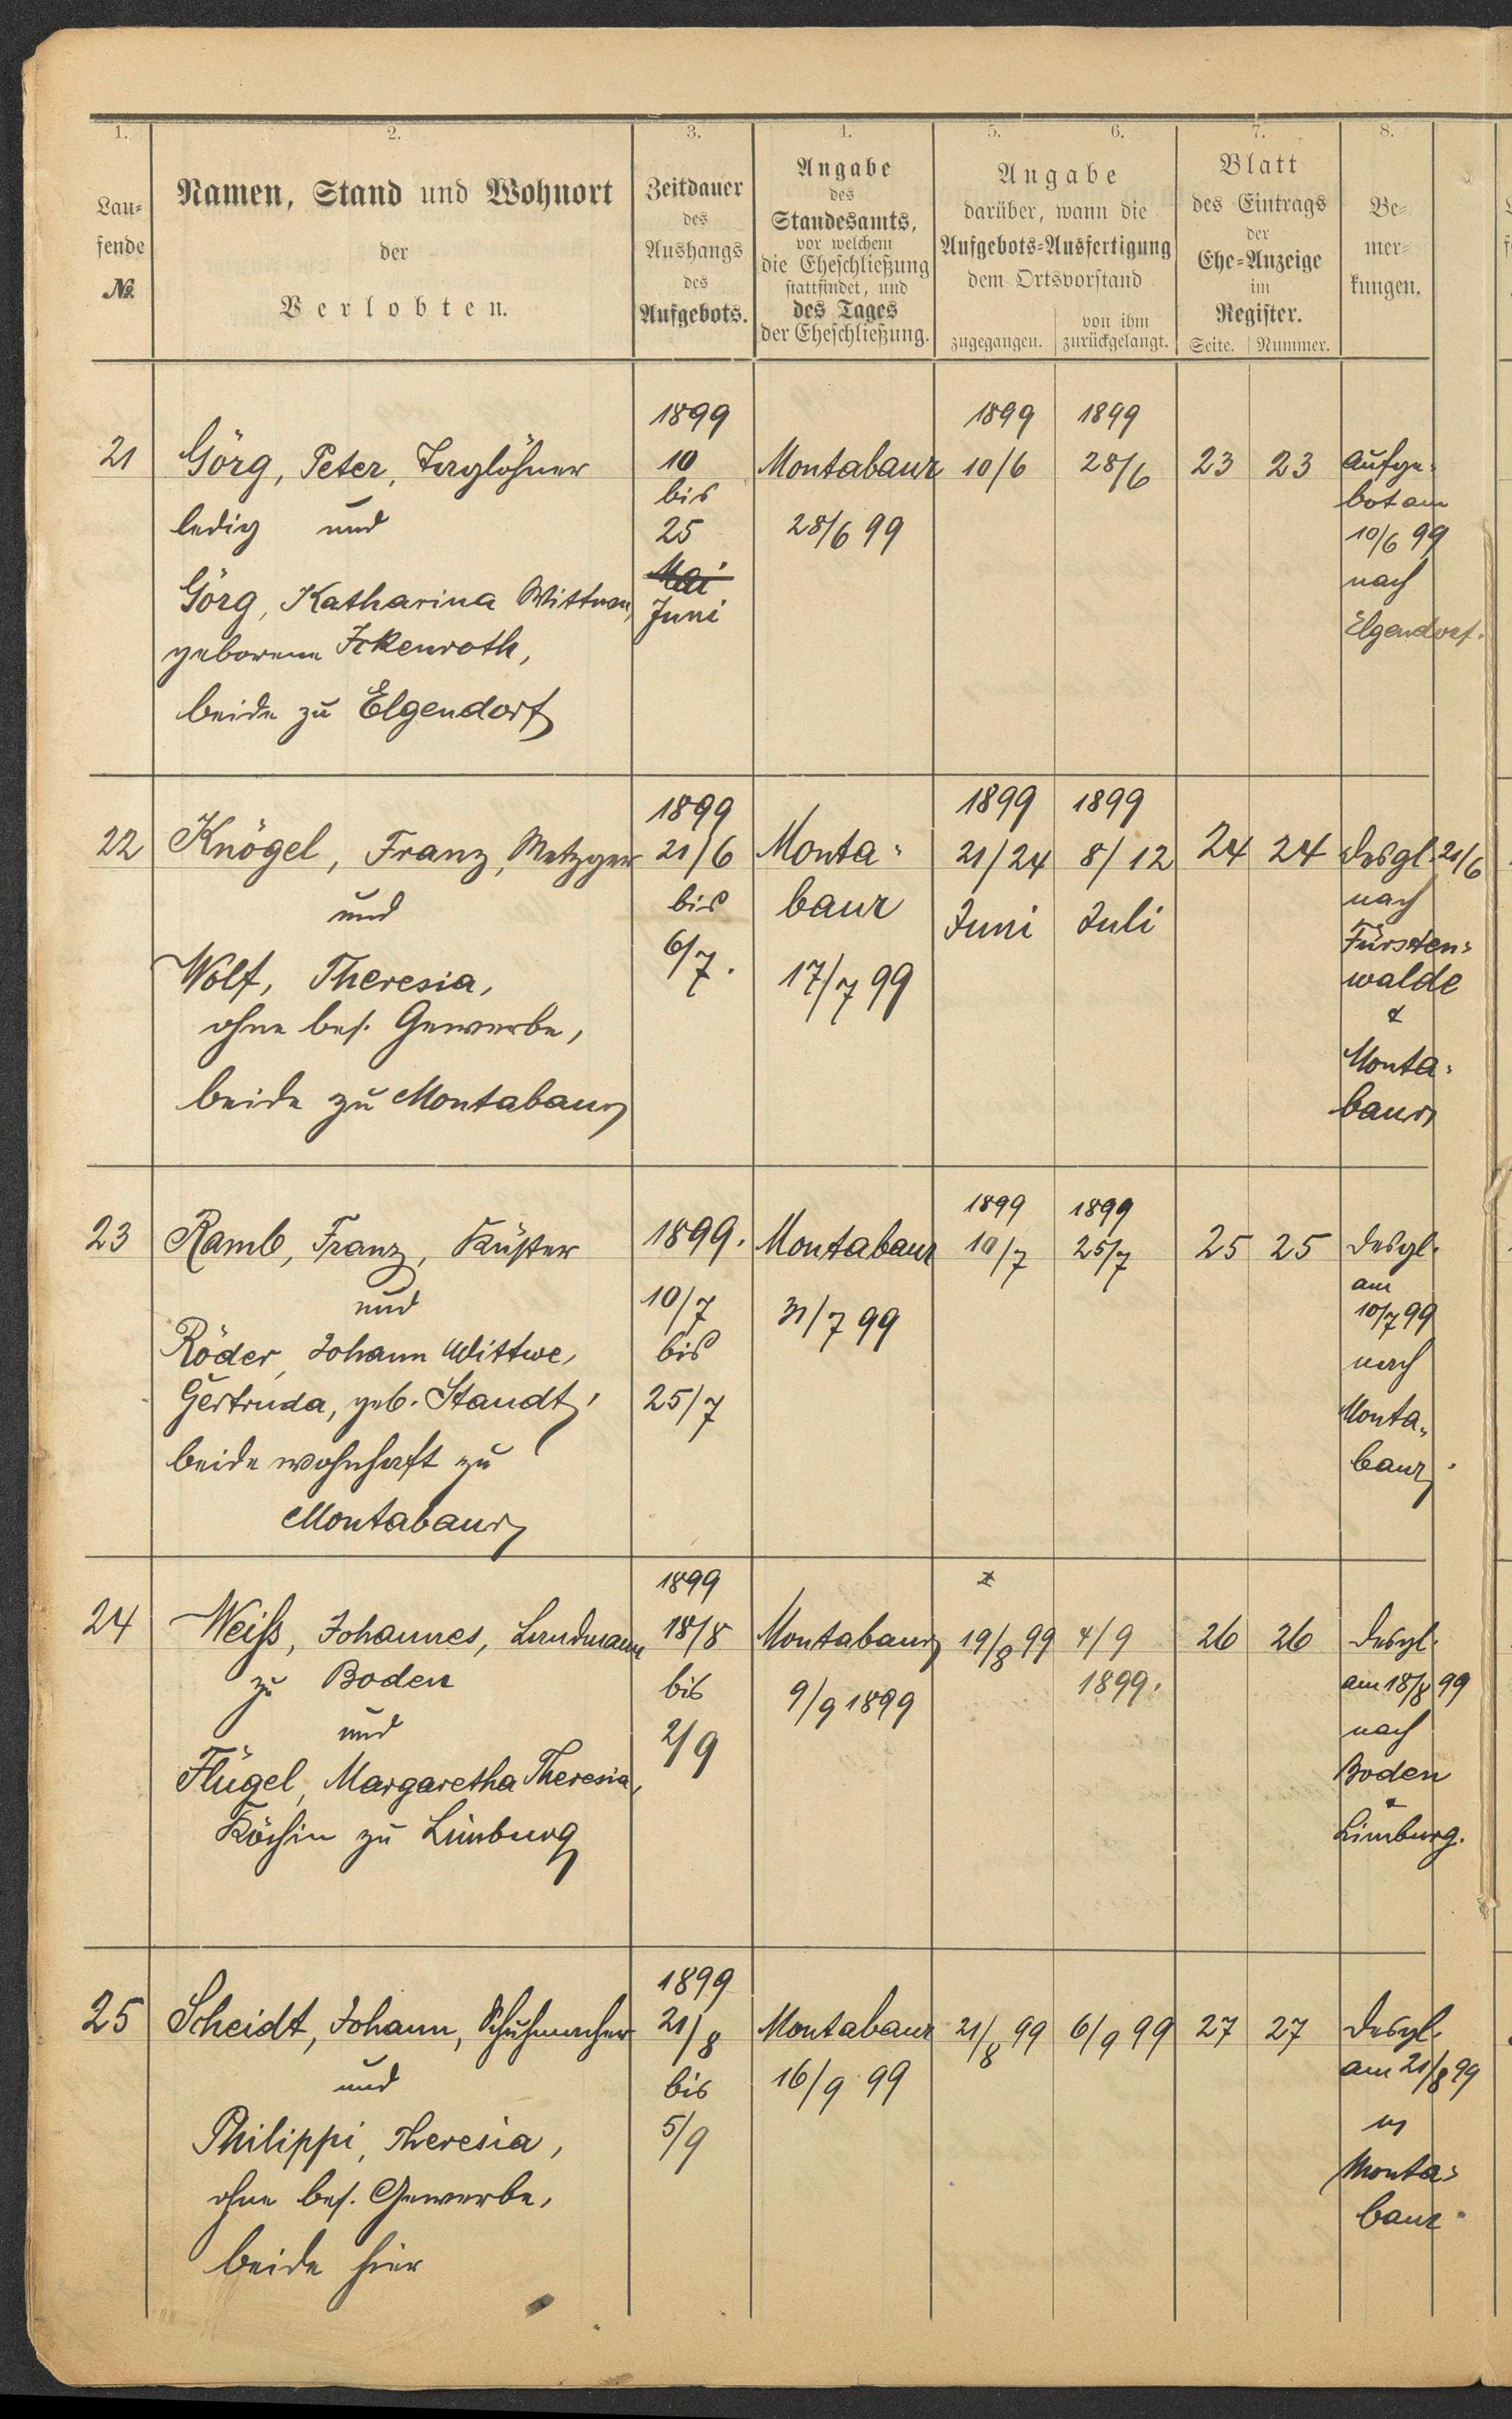 1. 2. 3. 4. 5. 6. 7. 8.
Lau-
fende
№.
Namen, Stand und Wohnort
der
Verlobten.
Zeitdauer
des
Aushangs
des
Aufgebots.
Angabe
des
Standesamts,
vor welchem
die Eheschließung
stattfindet, und
des Tages
der Eheschließung.
Angabe
darüber, wann die
Aufgebots-Ausfertigung
dem Ortsvorstand
zugegangen.
von ihm
zurückgelangt.
Blatt
des Eintrags
der
Ehe-Anzeige
im
Register.
Seite. Nummer.
Be-
mer-
kungen.
21
Görg, Peter, Taglöhner
ledig und
Görg, Katharina Wittwe,
geborene Ickenroth,
beide zu Elgendorf
1899
10
bis
25
Mai
Juni
Montabaur
28/6 99
1899
10/6
1899
28/6
23 23
Aufge-
bot am
10/6 99
nach
Elgendorf.
22
Knögel, Franz, Metzger
und
Wolf, Theresia,
ohne bes. Gewerbe,
beide zu Montabaur
1899
21/6
bis
6/7.
Monta-
baur
17/7 99
1899
21/24
Juni
1899
8/12
Juli
24 24
desgl. 21/6
nach
Fürsten-
walde
&
Monta-
baur
23
Ramb, Franz, Küster
und
Röder, Johann Wittwe,
Gertruda, geb. Staudt,
beide wohnhaft zu
Montabaur
1899.
10/7
bis
25/7
Montabaur
31/7 99
1899
10/7
1899
25/7
25 25
desgl.
am
10/7 99
nach
Monta-
baur.
24
Weiß, Johannes, Landmann
zu Boden
und
Flügel, Margaretha Theresia,
Köchin zu Limburg
1899
18/8
bis
2/9
Montabaur
9/9 1899
19/8 99
4/9
1899.
26 26
desgl.
am 18/8 99
nach
Boden
&
Limburg.
25
Scheidt, Johann, Schuhmacher
und
Philippi, Theresia,
ohne bes. Gewerbe,
beide hier
1899
21/8
bis
5/9
Montabaur
16/9 99
21/8 99
6/9 99
27 27
desgl.
am 21/8 99
Monta-
baur